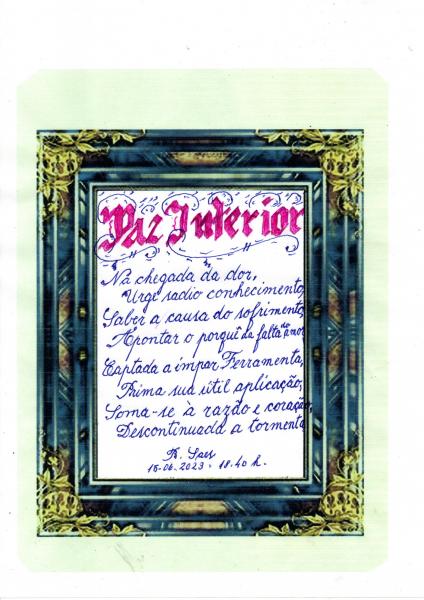 Paz Interior
Na chegada da dor,
Urge sadio conhecimento,
Saber a causa do sofrimento,
Apontar o porquê da falta de amor
Captada a ímpar Ferramenta,
Prima sua útil aplicação,
Soma-se à razão e coração,
Descontinuada a tormenta
R. Saes
15.06.2023 - 18.40 h.